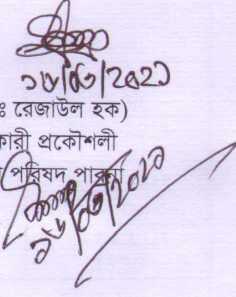 ১৮/০৩/২০২১
ঃ রেজাউল হক)
কারী প্রকৌশলী
পরিষদ পাবনা
১৮/০৩/২০২১